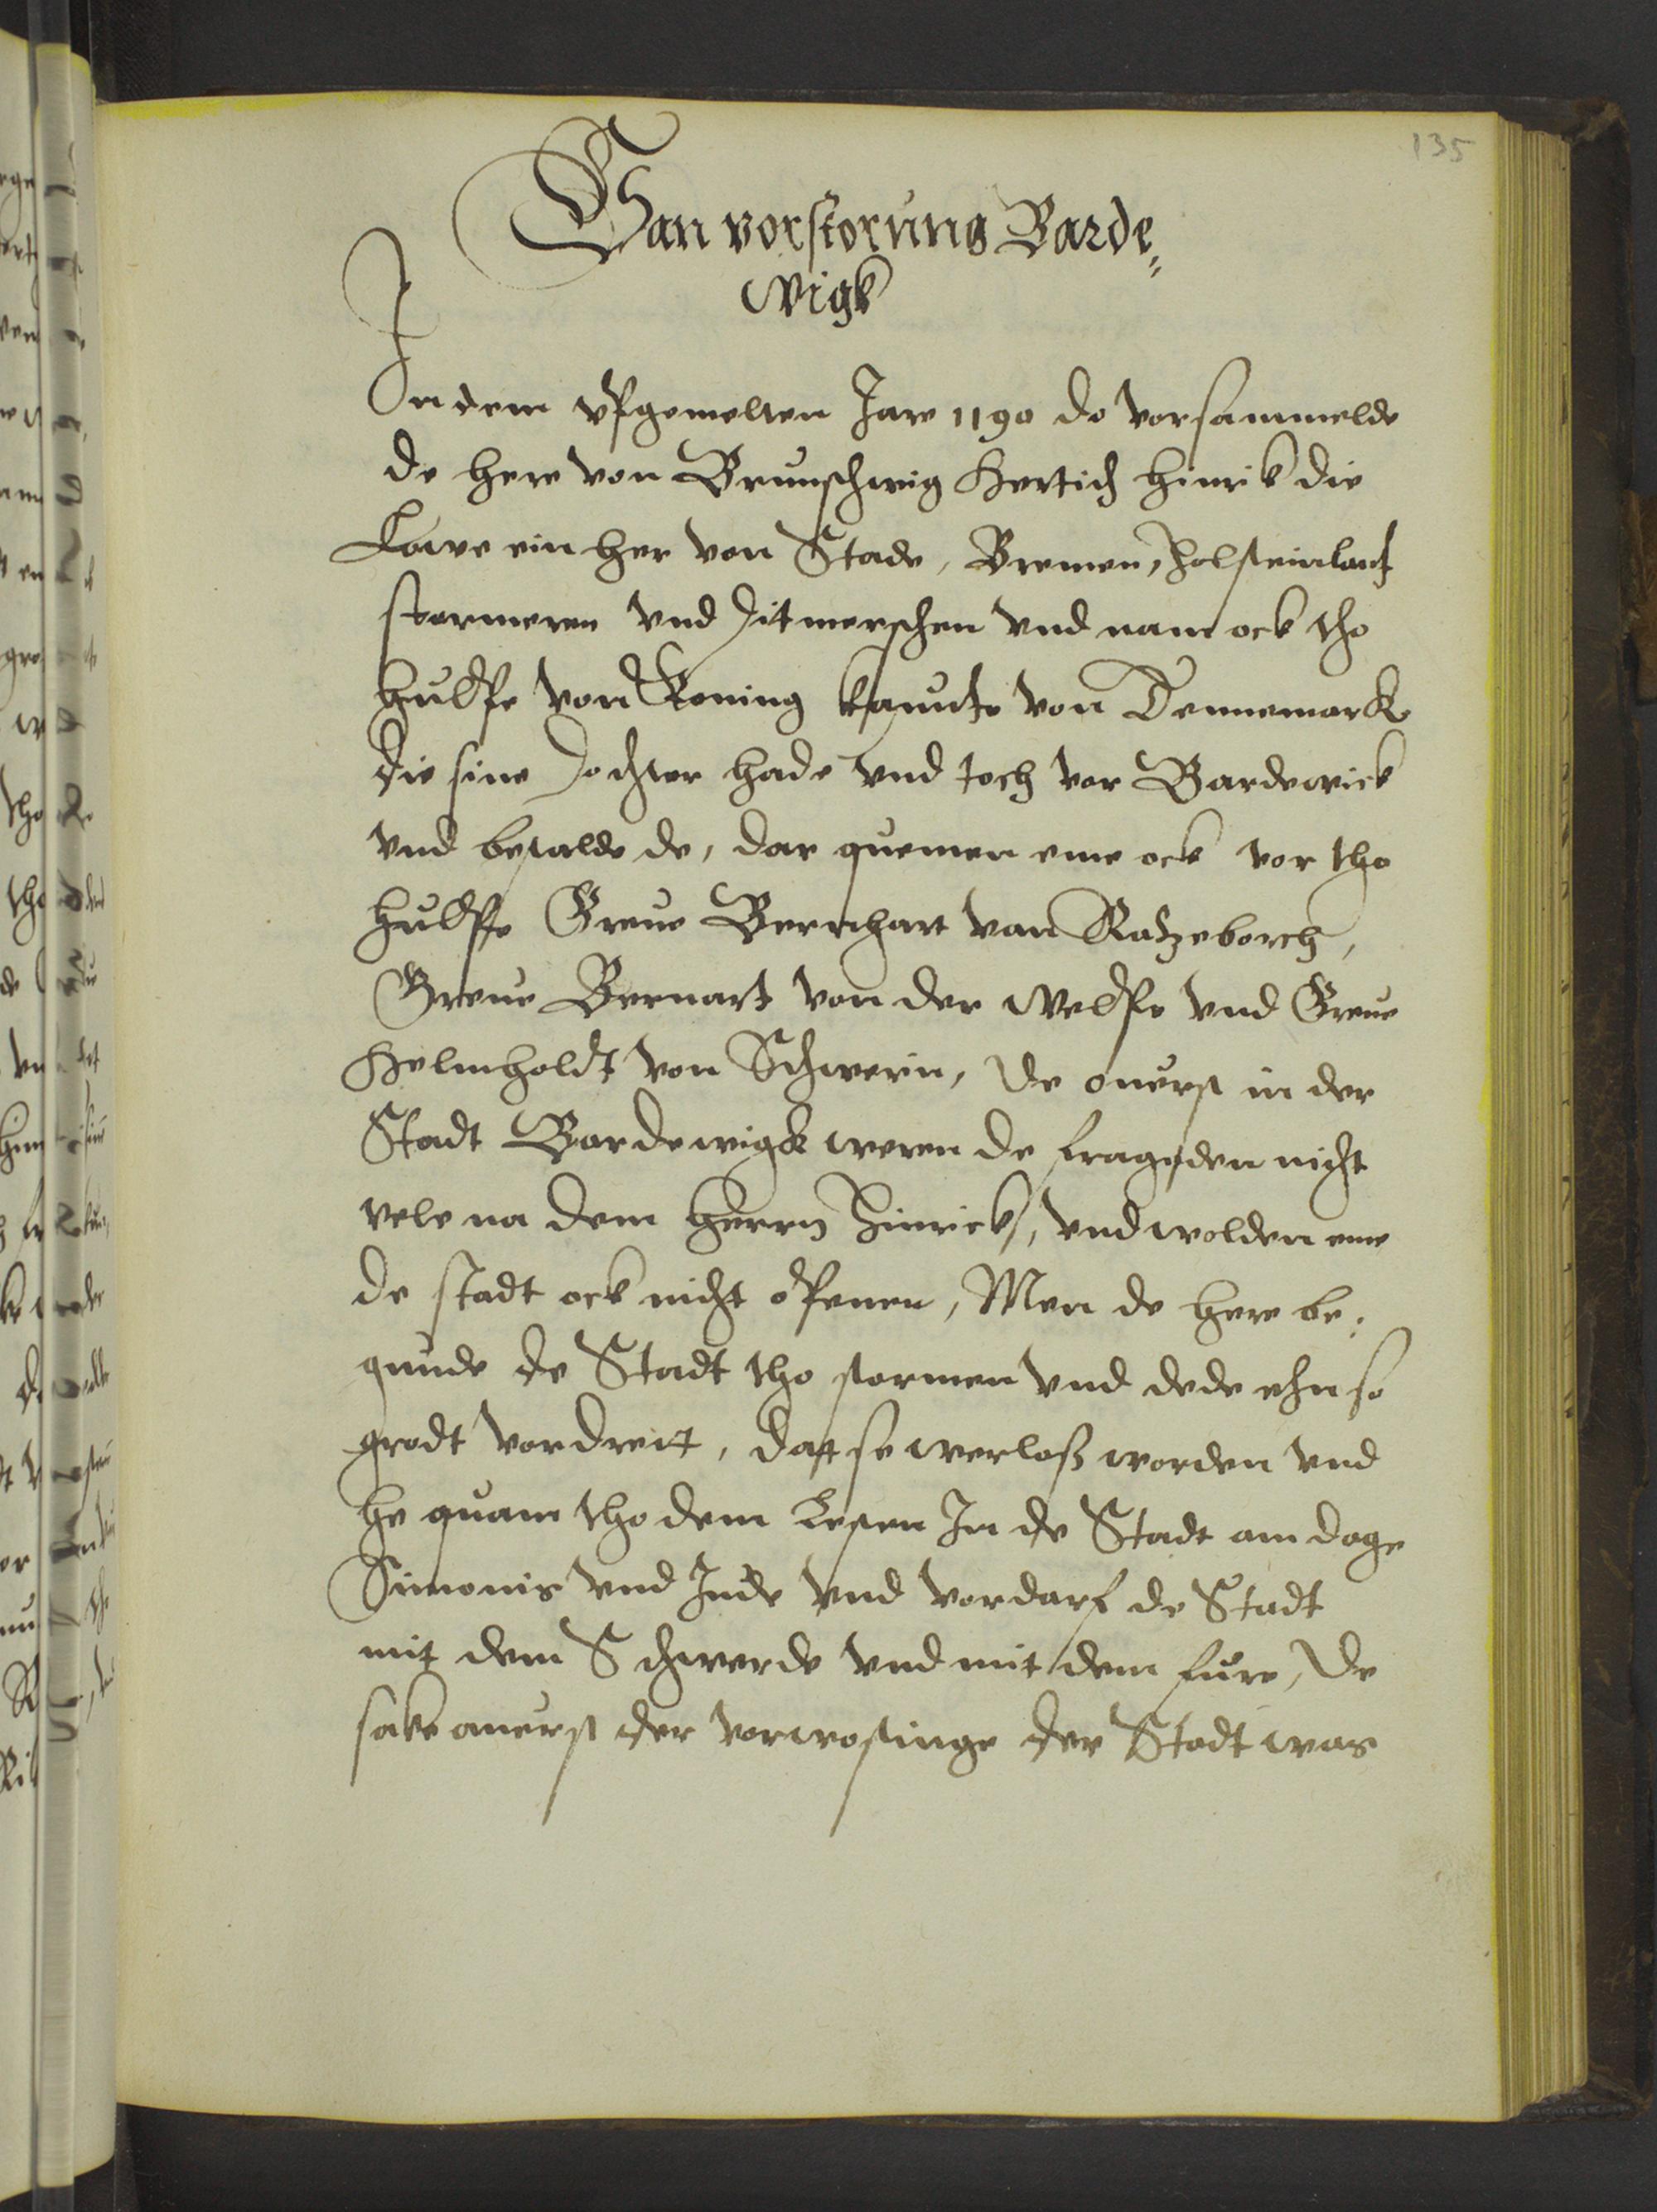 135
Van vorstorung Barde⸗
wigk
In dem upgemelten Jare 1190 do vorsammelde
de here von Brunschwig Hertich Hinrik die
Lowe ein her von Stade, Bremen, Holsteinlant
stormeren und Ditmerschen und nam ock tho
hulpe von Koning Kanute von Dennemark
die sine Dochter hade und toch vor Bardewick
und bestalde de, dar quemen eme ock vor tho
hulpe Greve Bernhart van Ratzeborch,
Greve Bernart von der Welpe und Greve
Helmholdt von Schwerin, de overst in der
Stadt Bardewigk weren de frageden nicht
vele na dem Herrn Hinrick, und wolden eme
de stadt ock nicht openen, Men de here be⸗
gunde de Stadt tho stormen und dede ehn so
grodt vordreit, dat se werloß worden und
he quam tho dem lesten In de Stadt am dage
Simonis und Jude und vordarf de Stadt
mit dem Schwerde und mit dem fure, De
sake averst der vorwostinge der Stadt was